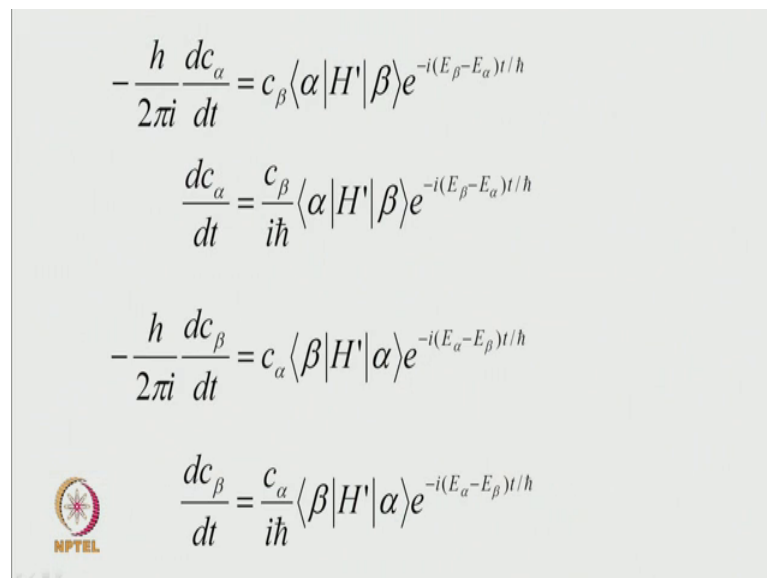 -\frac{h}{2\pi i} \frac{dc_α}{dt} = c_β⟨α|H'|β⟩e^{-i(E_β-E_α)t/ħ}
\frac{dc_α}{dt} = \frac{c_β}{iħ}⟨α|H'|β⟩e^{-i(E_β-E_α)t/ħ}
-\frac{h}{2\pi i} \frac{dc_β}{dt} = c_α⟨β|H'|α⟩e^{-i(E_α-E_β)t/ħ}
\frac{dc_β}{dt} = \frac{c_α}{iħ}⟨β|H'|α⟩e^{-i(E_α-E_β)t/ħ}
NPTEL